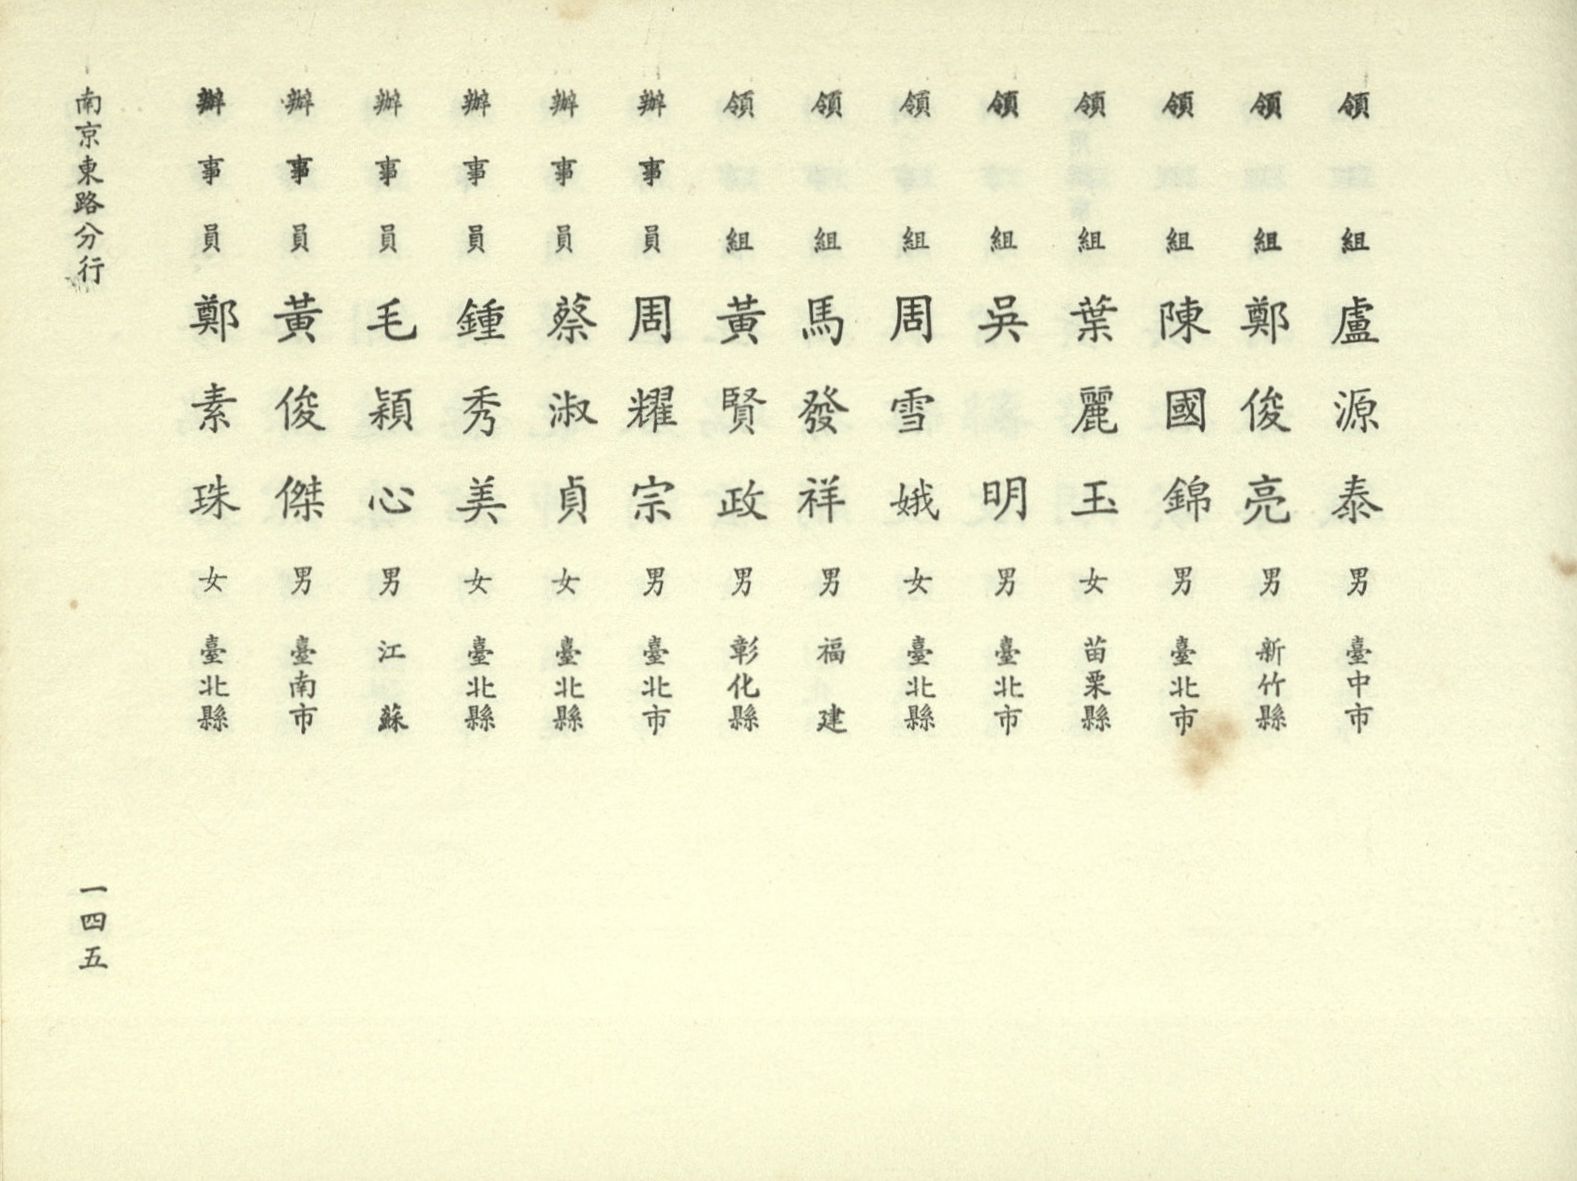 領組盧源泰男臺中市
領組鄭俊亮男新竹縣
領組陳國錦男臺北市
領組葉麗玉女苗栗縣
領組吳明男臺北市
領組周雪娥女臺北縣
領組馬發祥男福建
領組黃賢政男彰化縣
辦事員周耀宗男臺北市
辦事員蔡淑貞女臺北縣
辦事員鍾秀美女臺北縣
辦事員毛穎心男江蘇
辦事員黃俊傑男臺南市
辦事員鄭素珠女臺北縣
南京東路分行
一四五